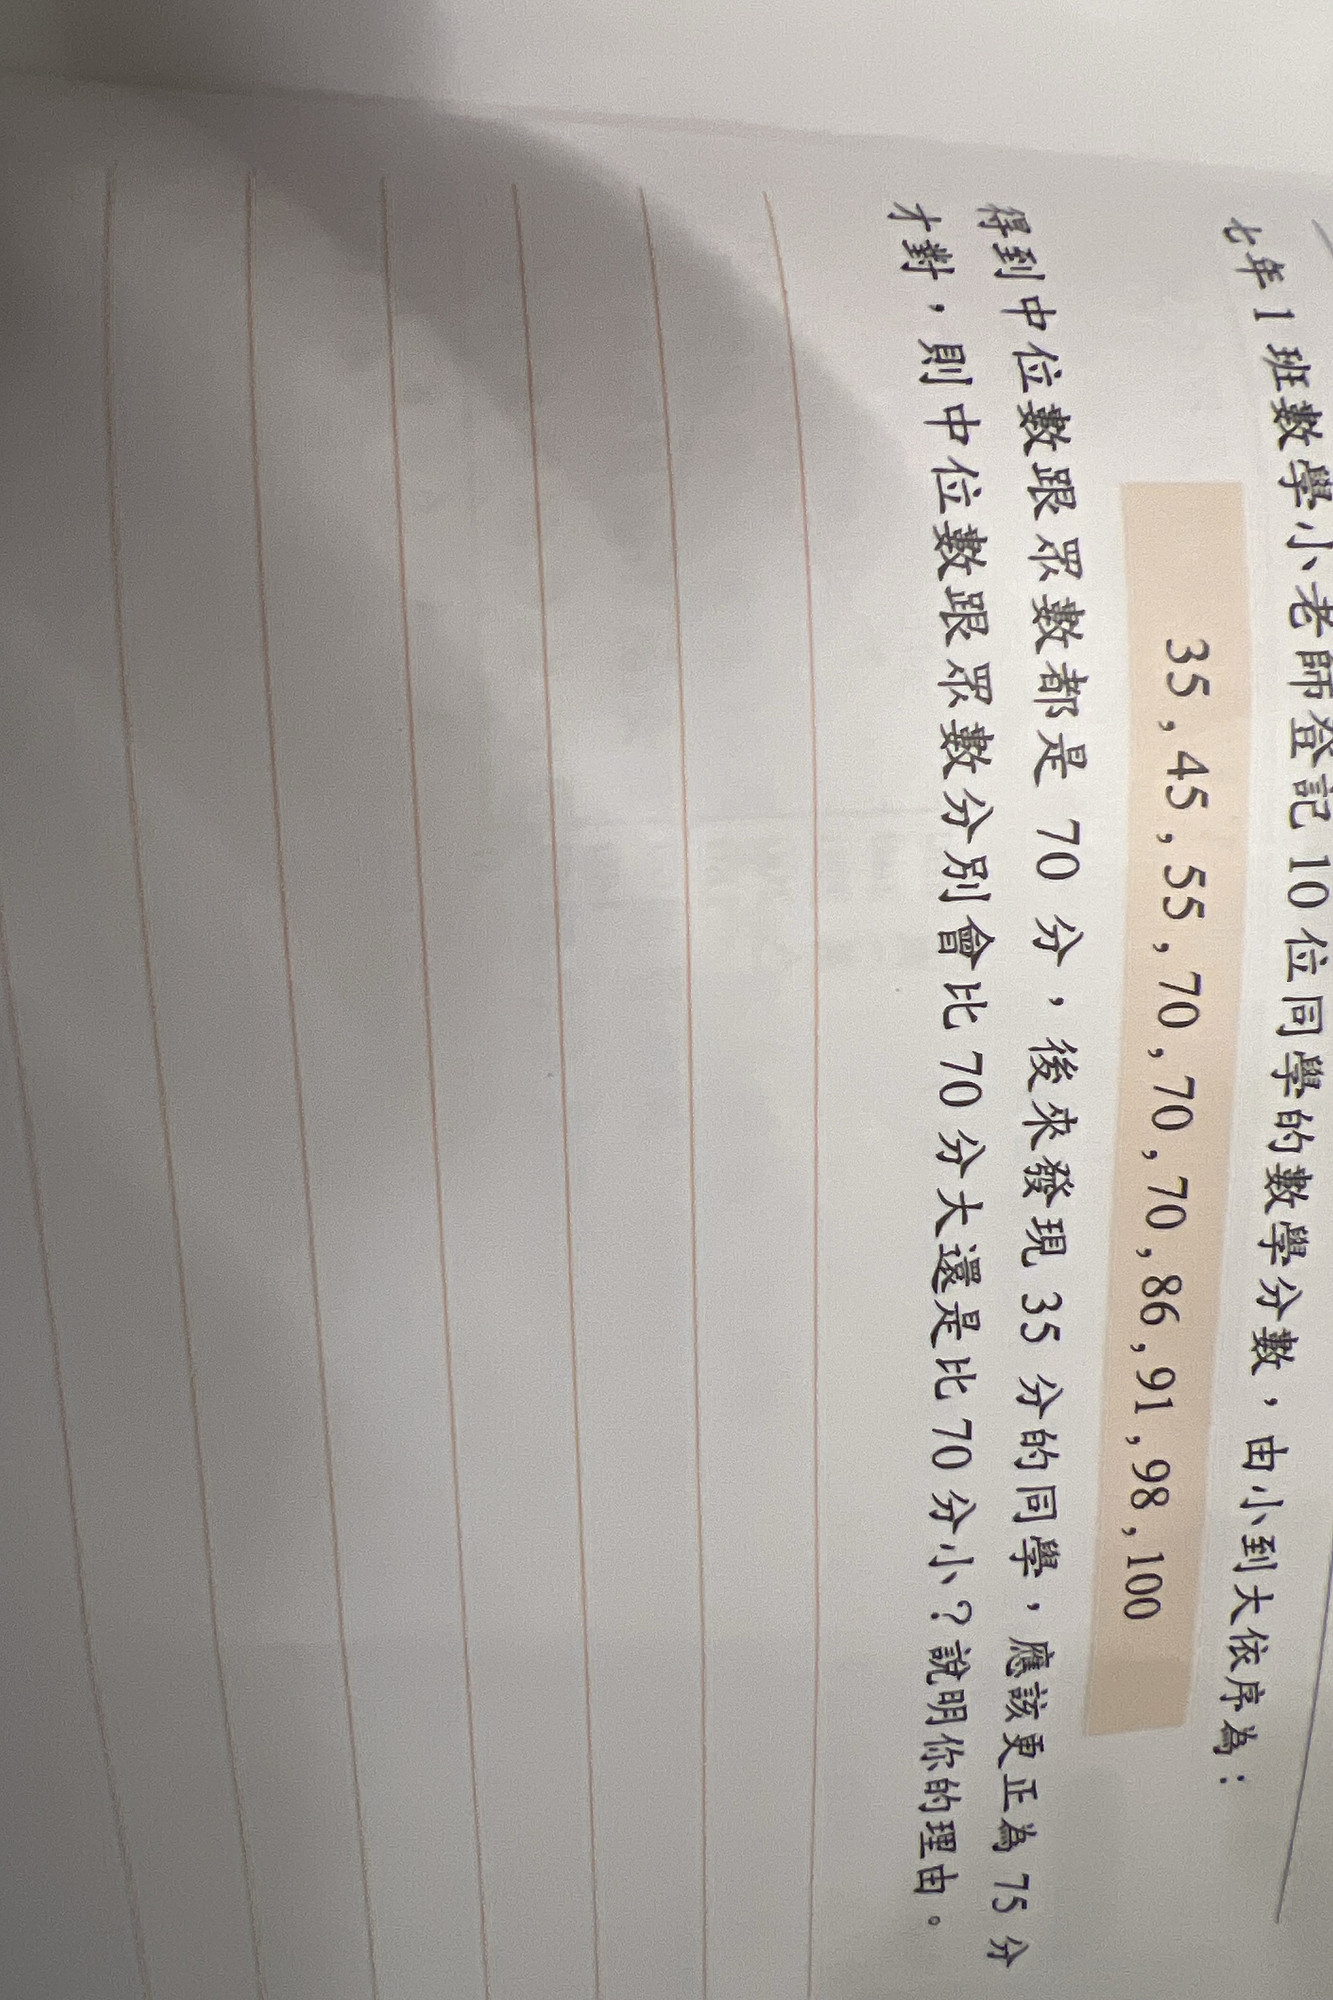 七年1班數學小老師登記10位同學的數學分數，由小到大依序為：
35，45，55，70，70，70，86，91，98，100
得到中位數跟眾數都是 70 分，後來發現 35 分的同學，應該更正為 75 分
才對，則中位數跟眾數分別會比 70 分大還是比 70 分小？說明你的理由。